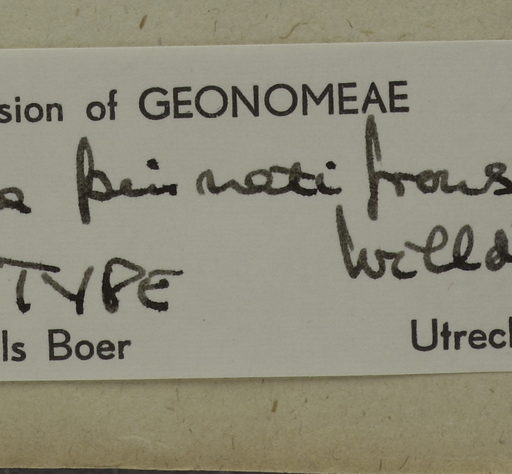 sion of GEONOMEAE
a pinnatifrons
Willd
TYPE
ls Boer Utrecl